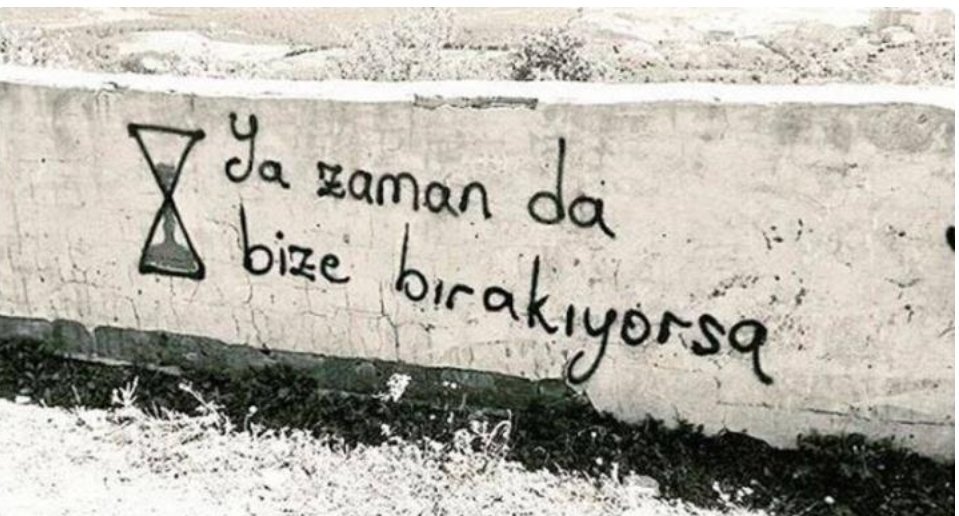 Ya zaman da
bize bırakıyorsa